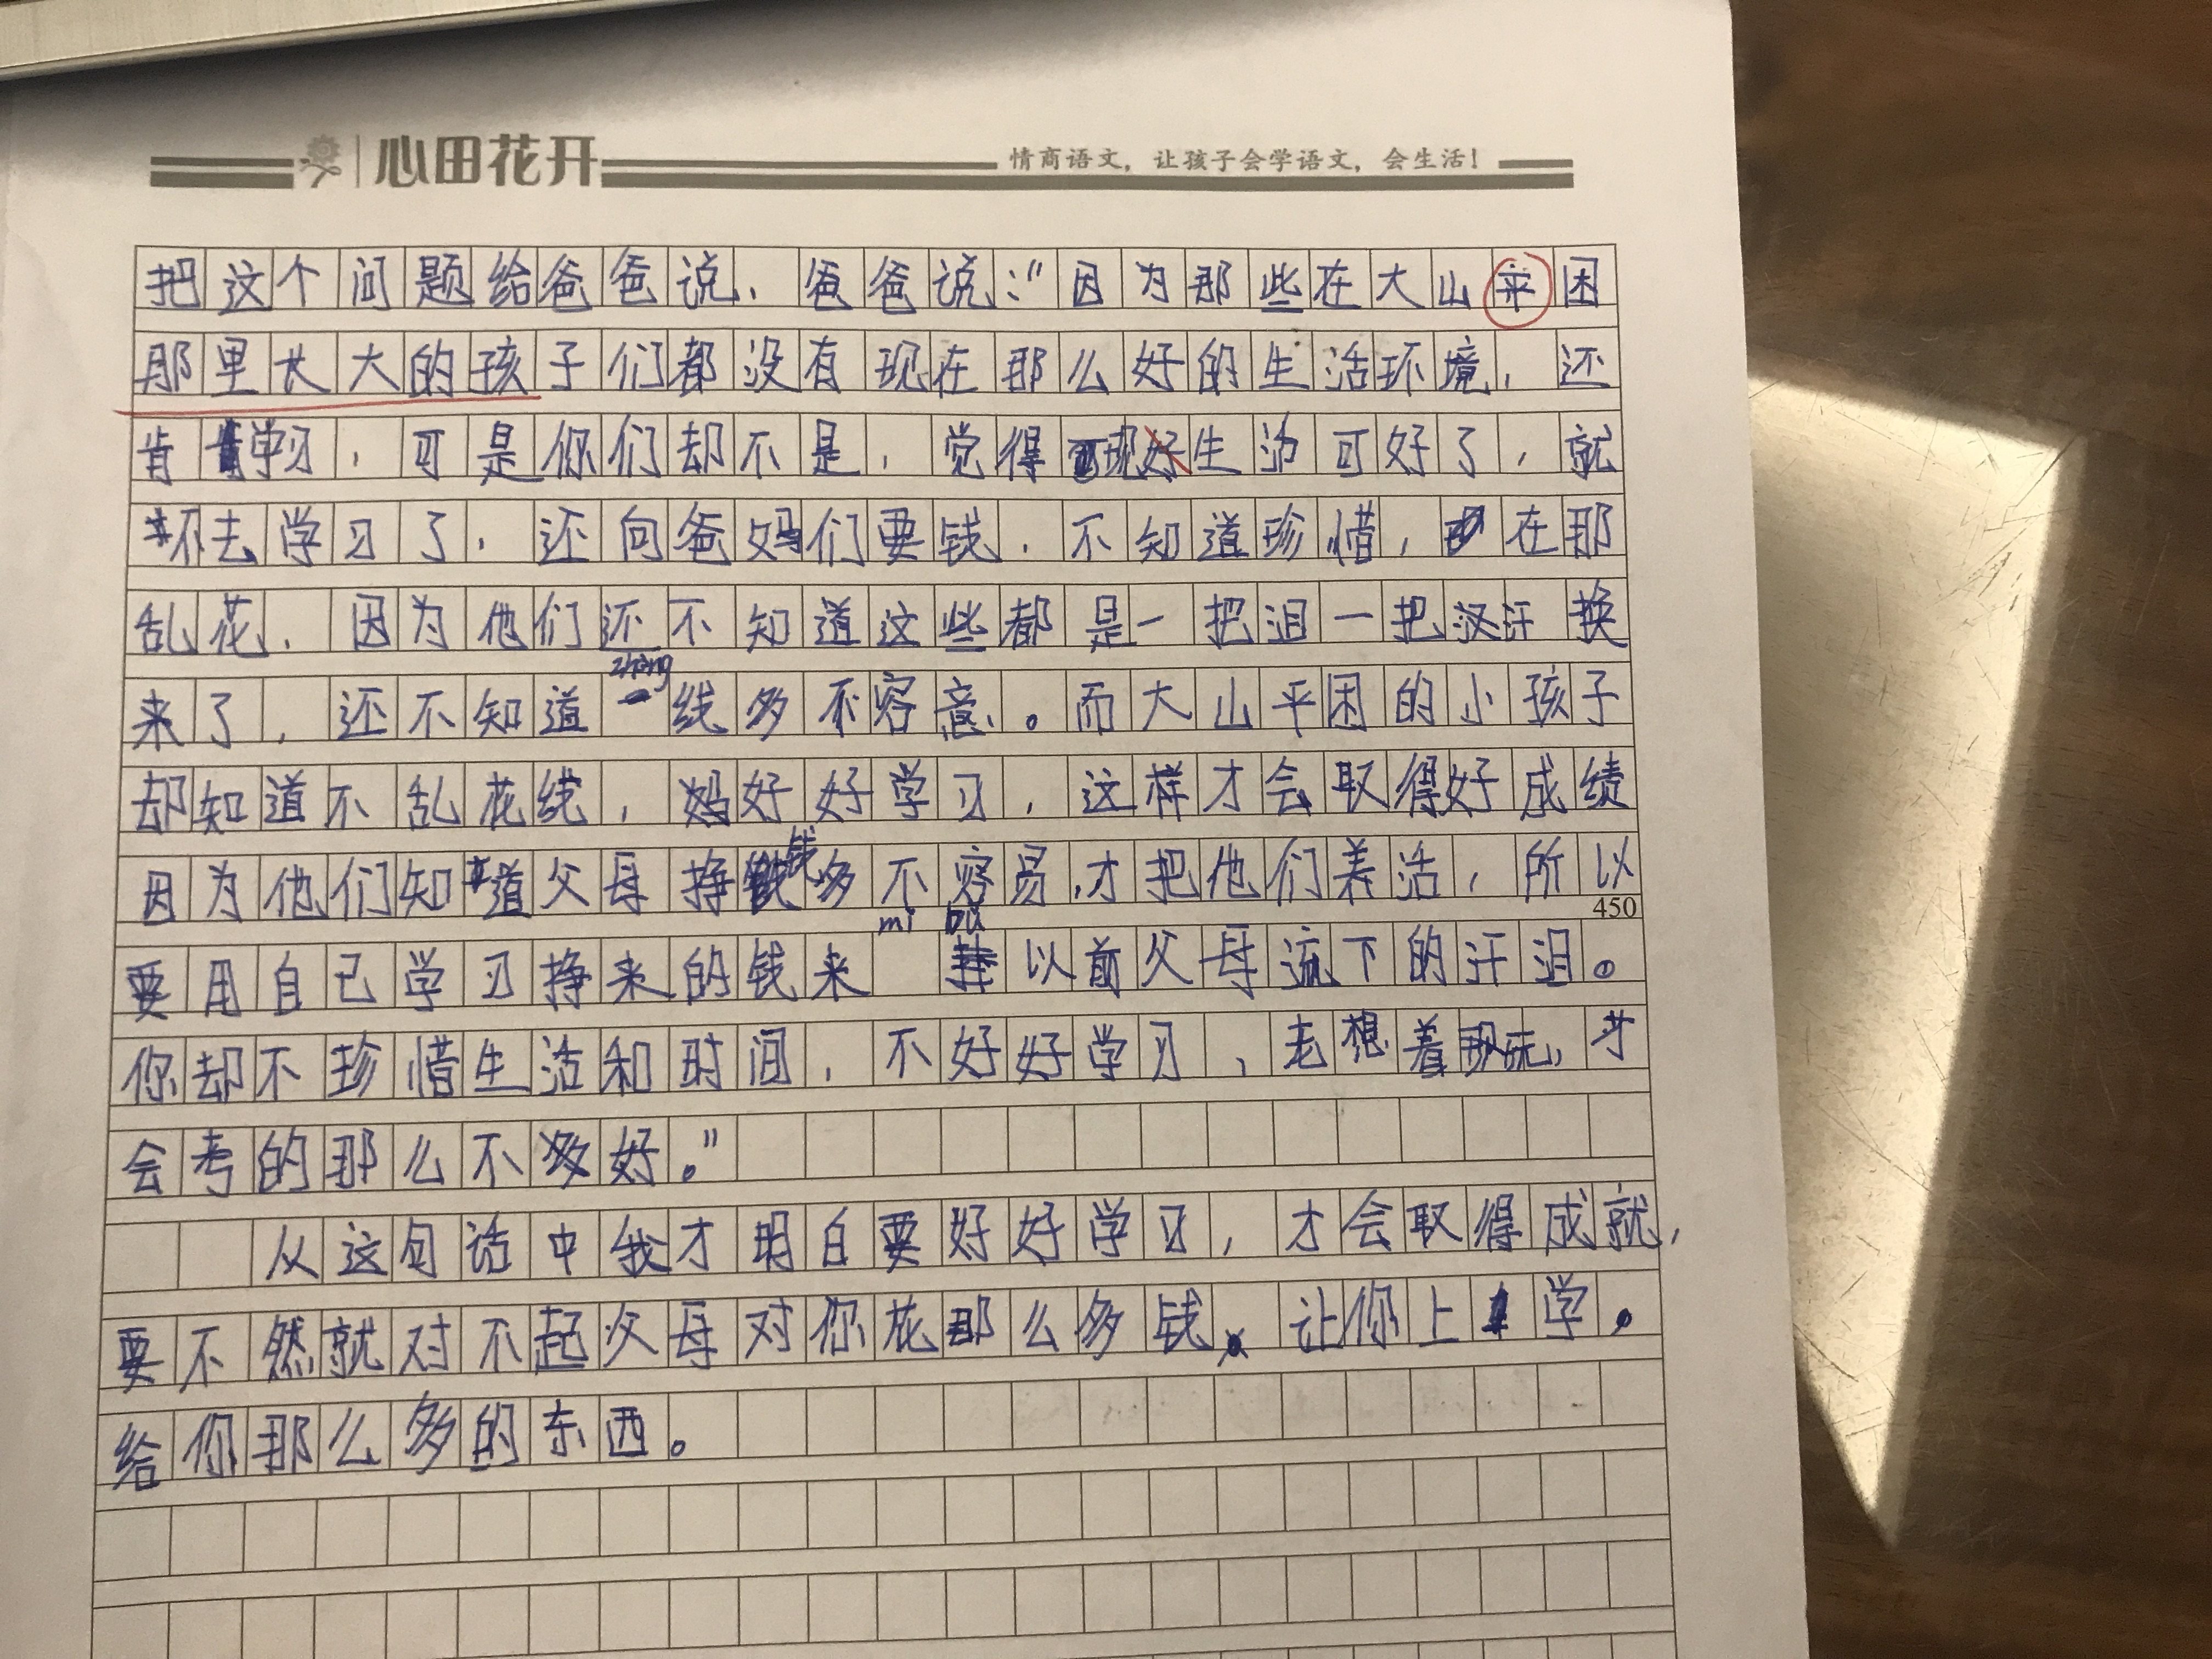 心田花开
情商语文，让孩子会学语文，会生活！
把这个问题给爸爸说，爸爸说：“因为那些在大山平困
那里长大的孩子们都没有现在那么好的生活环境，还
肯学习，可是你们却不是，觉得现生活可好了，就
不去学习了，还向爸妈们要钱，不知道珍惜，在那
乱花，因为他们还不知道这些都是一把泪一把汗换
来了，还不知道zhèng线多不容意。而大山平困的小孩子
却知道不乱花线，好好学习，这样才会取得好成绩
因为他们知道父母挣钱多不容易，才把他们养活，所以
450
要用自己学习挣来的钱来mí bǔ以前父母流下的汗泪。
你却不珍惜生活和时间，不好好学习，老想着玩，才
会考的那么不好。”
从这句话中我才明白要好好学习，才会取得成就，
要不然就对不起父母对你花那么多钱，让你上学。
给你那么多的东西。